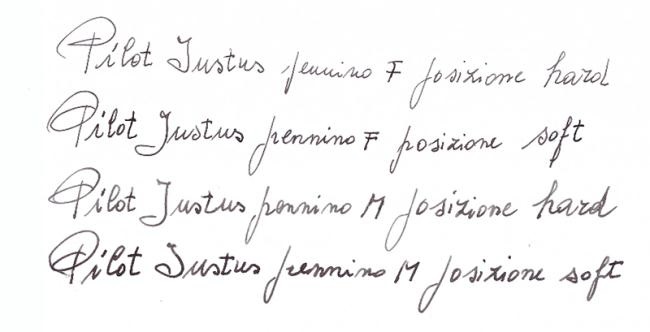 Pilot Justus pennino F posizione hard
Pilot Justus pennino F posizione soft
Pilot Justus pennino M posizione hard
Pilot Justus pennino M posizione soft